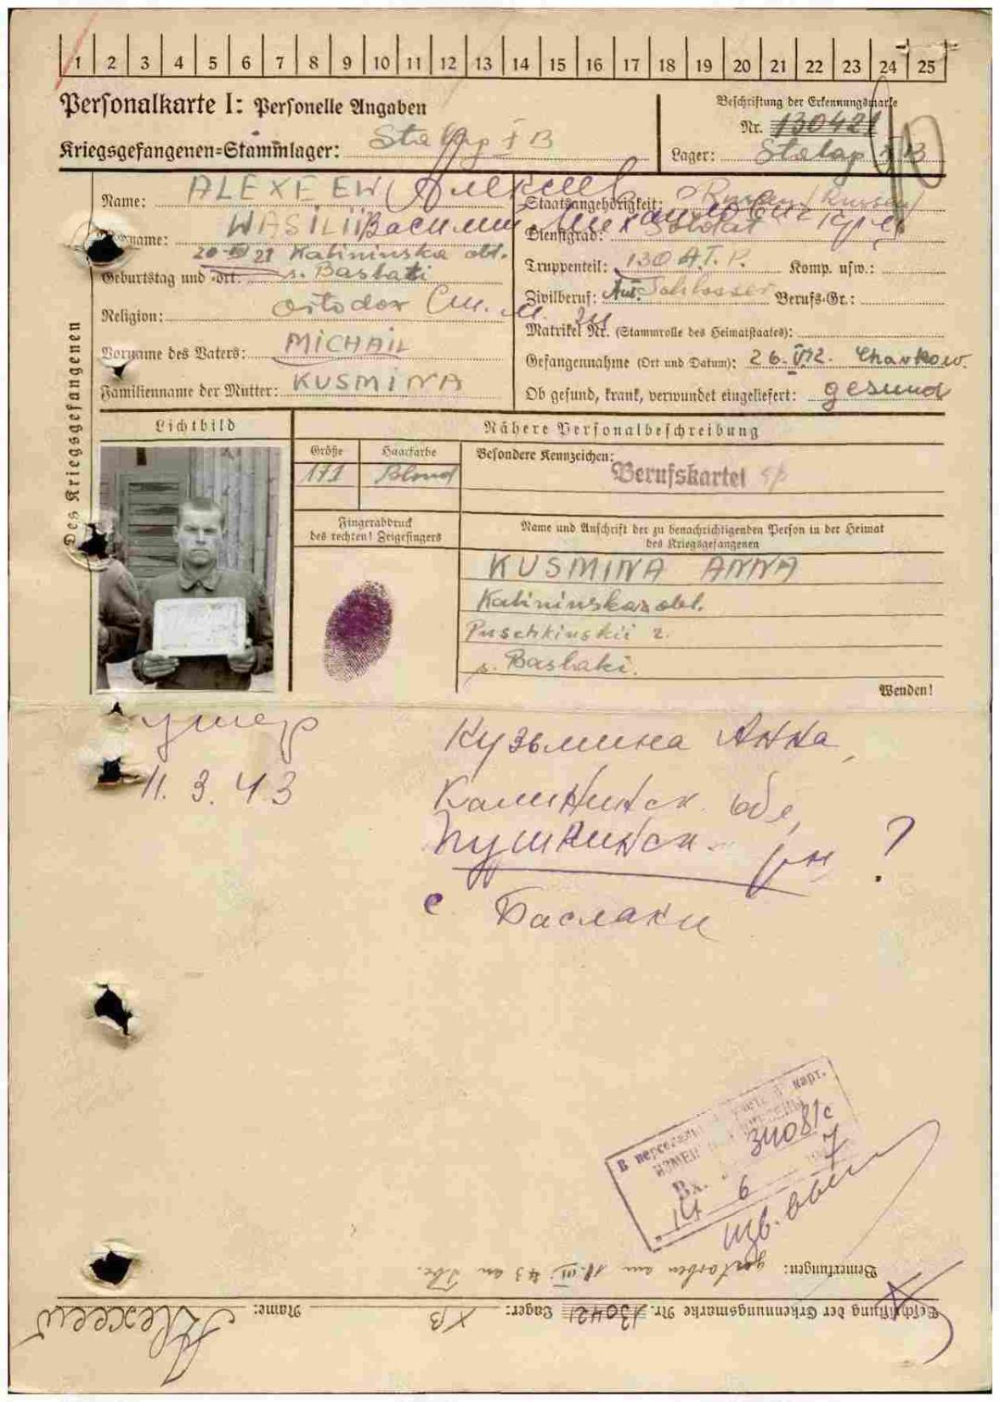 1 2 3 4 5 6 7 8 9 10 11 12 13 14 15 16 17 18 19 20 21 22 23 24 25
Personalkarte I: Personelle Angaben
Beschriftung der Erkennungsmarke
Nr. 130421
Kriegsgefangenen=Stammlager: Stalag I B
Lager: Stalag
Des Kriegsgefangenen
Name: ALEXEEW Алексеев
Staatsangehörigkeit:
WASILII Василий Михайлович
Dienstgrad: Soldat
Geburtstag und -ort: Kalininska obl.
s. Baslaki
Truppenteil: 130 A.T.P. Komp. usw.:
Zivilberuf: Schlosser Berufs-Gr.:
Religion: Ortodox
Matrikel Nr. (Stammrolle des Heimatstaates):
Vorname des Vaters: MICHAIL
Gefangennahme (Ort und Datum): Charkow.
Familienname der Mutter: KUSMINA
Ob gesund, krank, verwundet eingeliefert: gesund
Lichtbild
Nähere Personalbeschreibung
Größe Haarfarbe Besondere Kennzeichen:
171 Blond Berufskartei
Fingerabdruck
des rechten! Zeigefingers
Name und Anschrift der zu benachrichtigenden Person in der Heimat
des Kriegsgefangenen
KUSMINA ANNA
Kalininskaz obl.
Puschkinskii r.
s. Baslaki.
Wenden!
умер
11. 3. 43
Кузьмина Анна,
Калининск. обл,
Пушкинск. рн ?
с Баслаки
В персональн
Вх. 34081с
14 6 7
Bemerkungen: gestorben am 11. III. 43 an Tbc.
Beschriftung der Erkennungsmarke Nr. 130421 Lager: IB Name: Alexeew